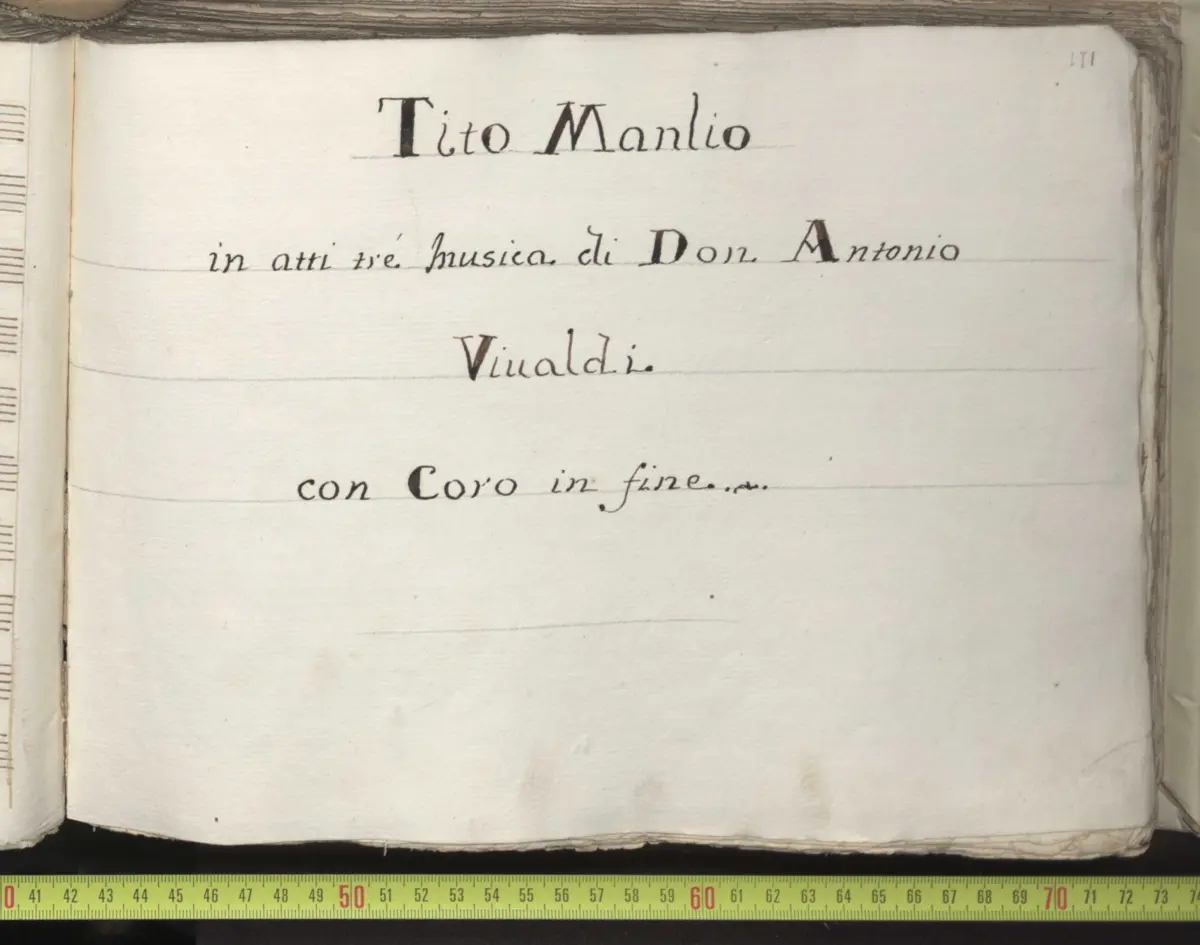 171
Tito Manlio
in atti tré musica di Don Antonio
Viualdi.
con Coro in fine...
0 41 42 43 44 45 46 47 48 49 50 51 52 53 54 55 56 57 58 59 60 61 62 63 64 65 66 67 68 69 70 71 72 73 74